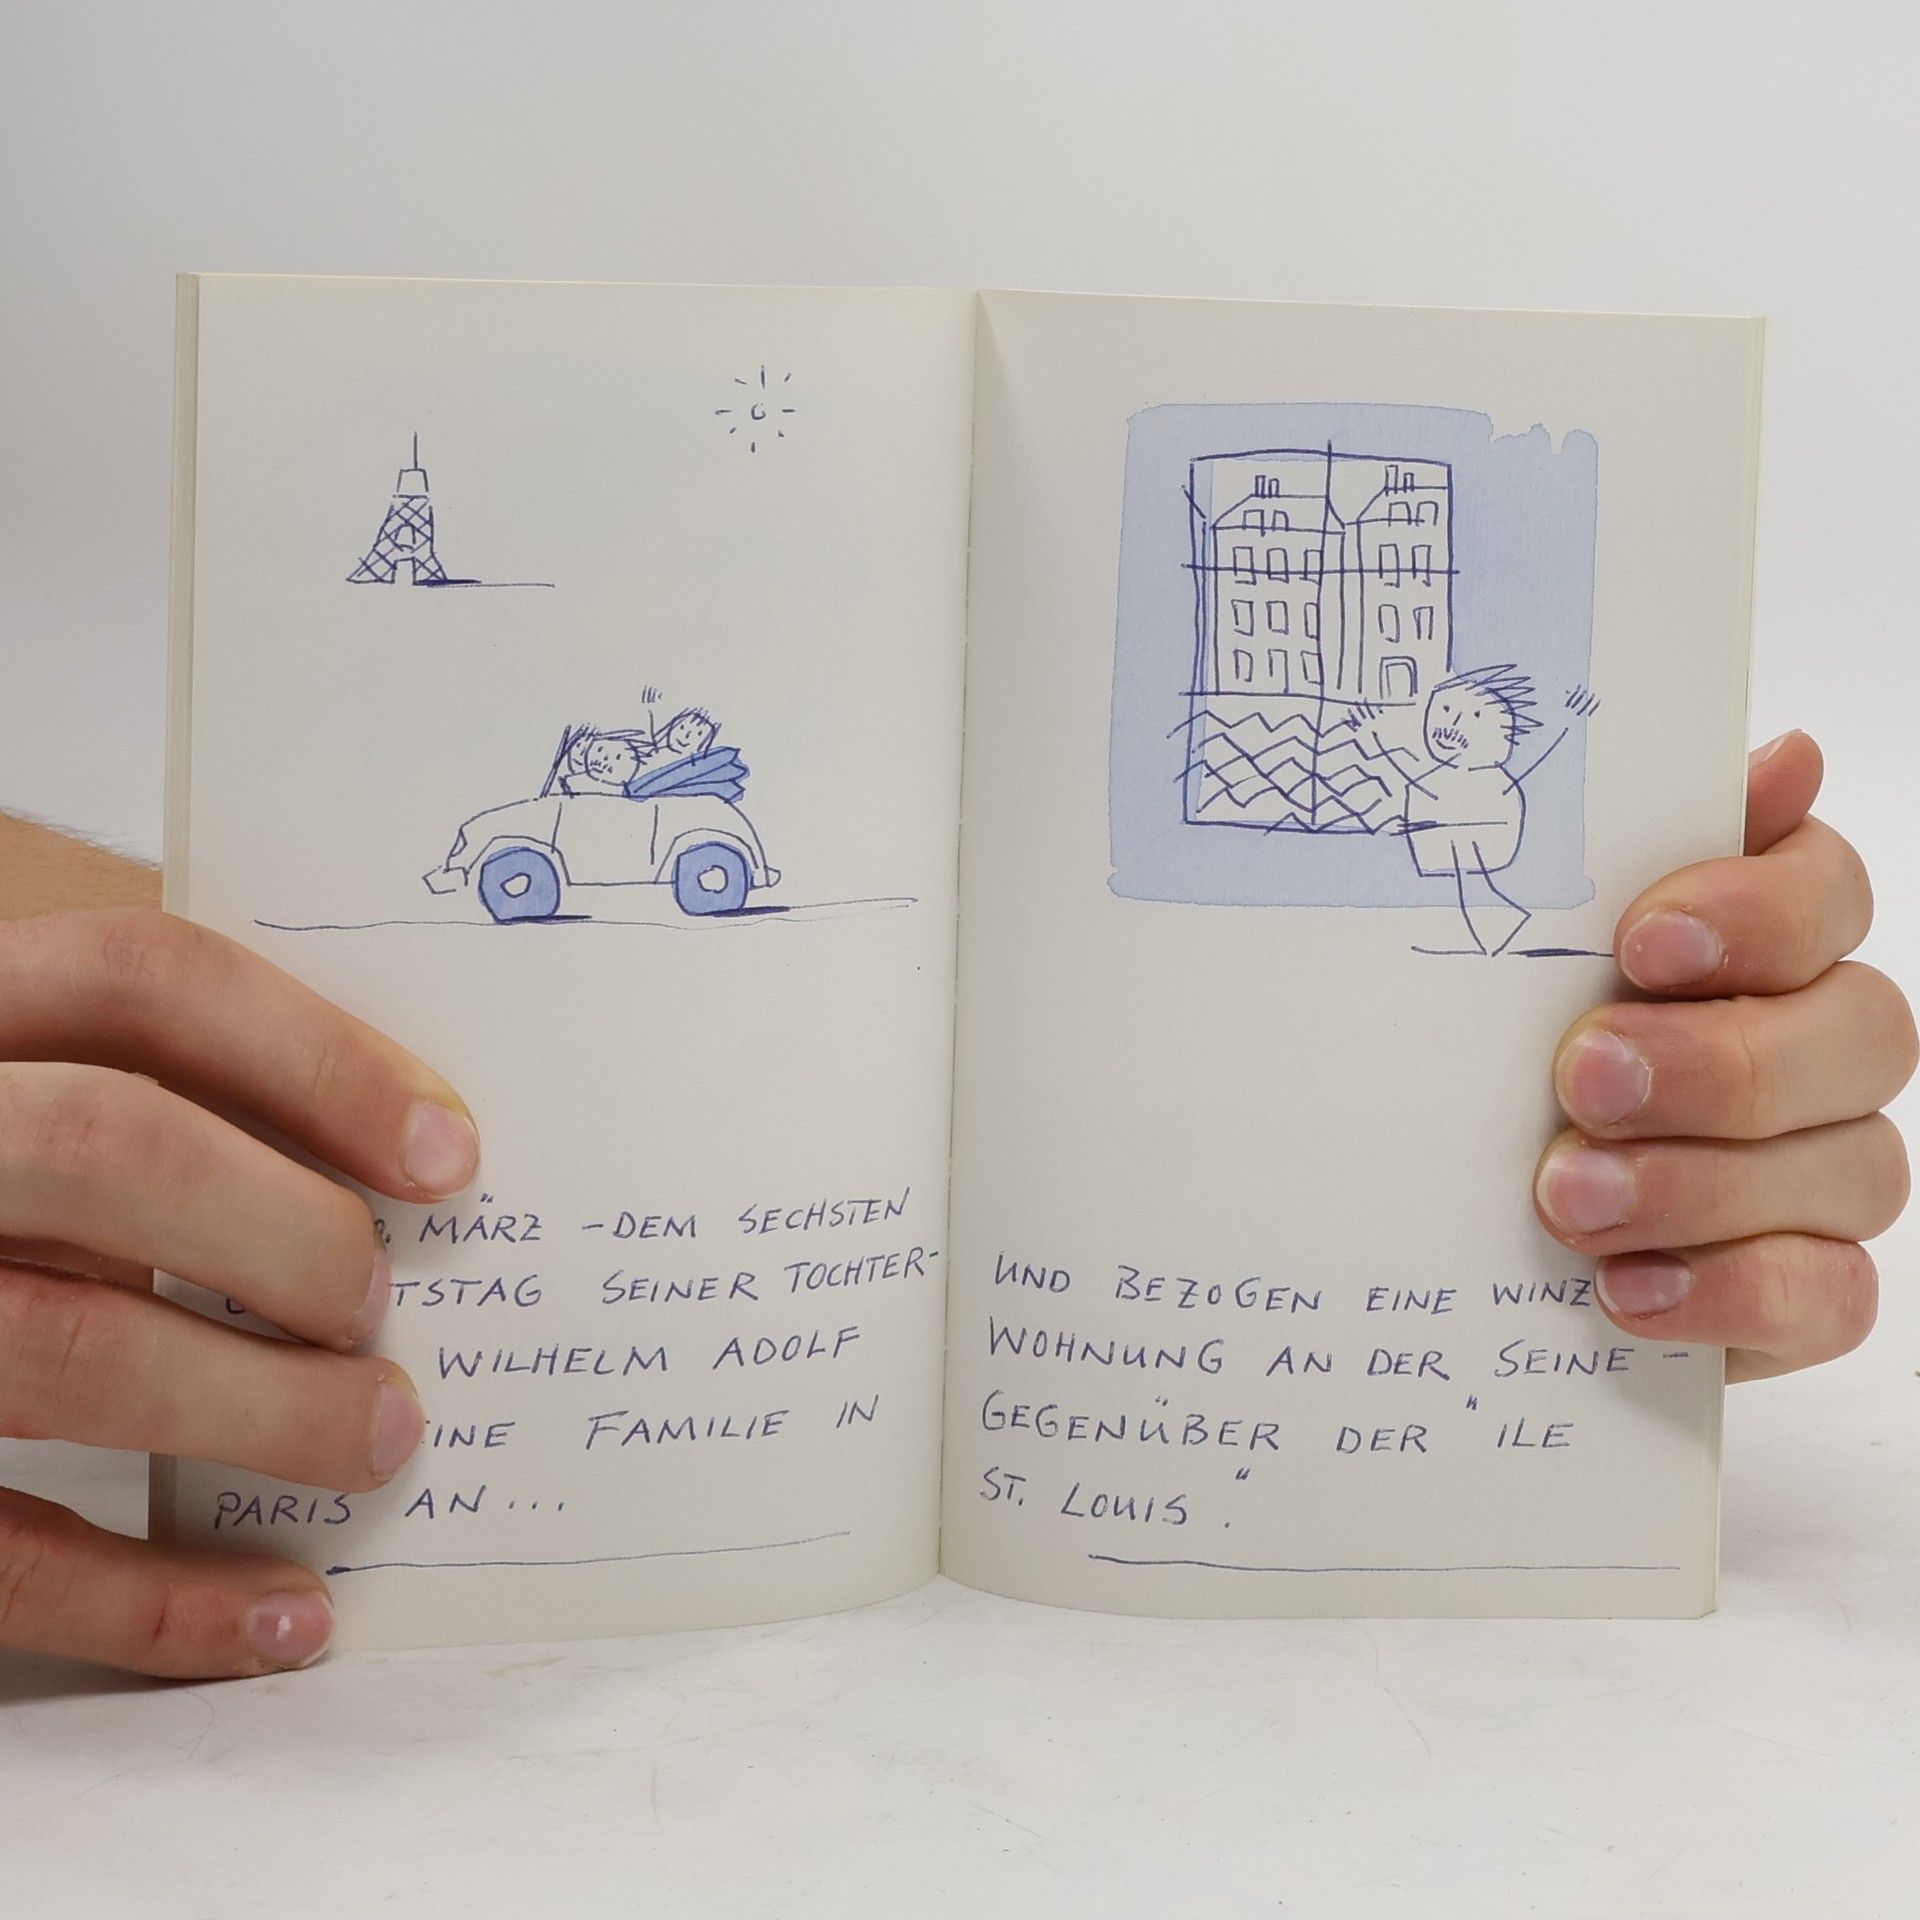 MÄRZ – DEM SECHSTEN
SEINER TOCHTER-
WILHELM ADOLF
FAMILIE IN
PARIS AN...
UND BEZOGEN EINE
WOHNUNG AN DER SEINE –
GEGENÜBER DER "ILE
ST. LOUIS."